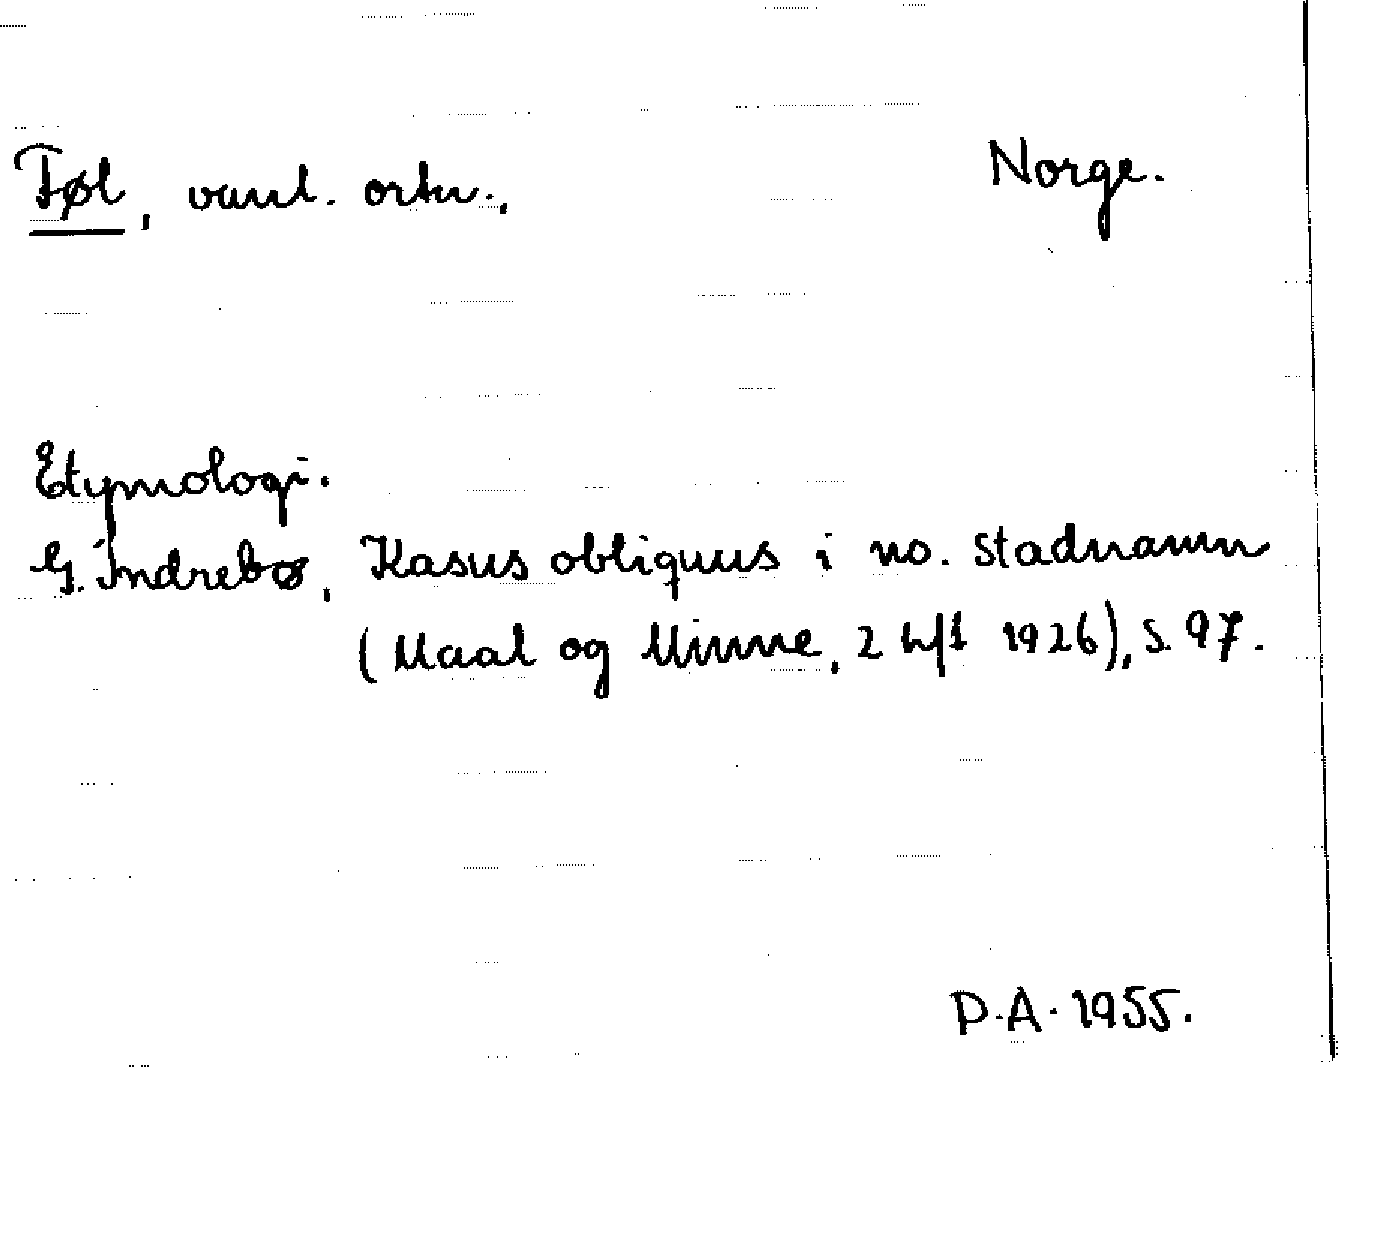 Føl, vanl. ortn., Norge.
Etymologi.
G. Indrebø, Kasus obliquus i no. stadnamn
(Maal og Minne, 2 hft 1926), s. 97.
D.A. 1955.